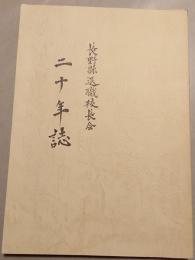 長野縣退職校長会
二十年誌